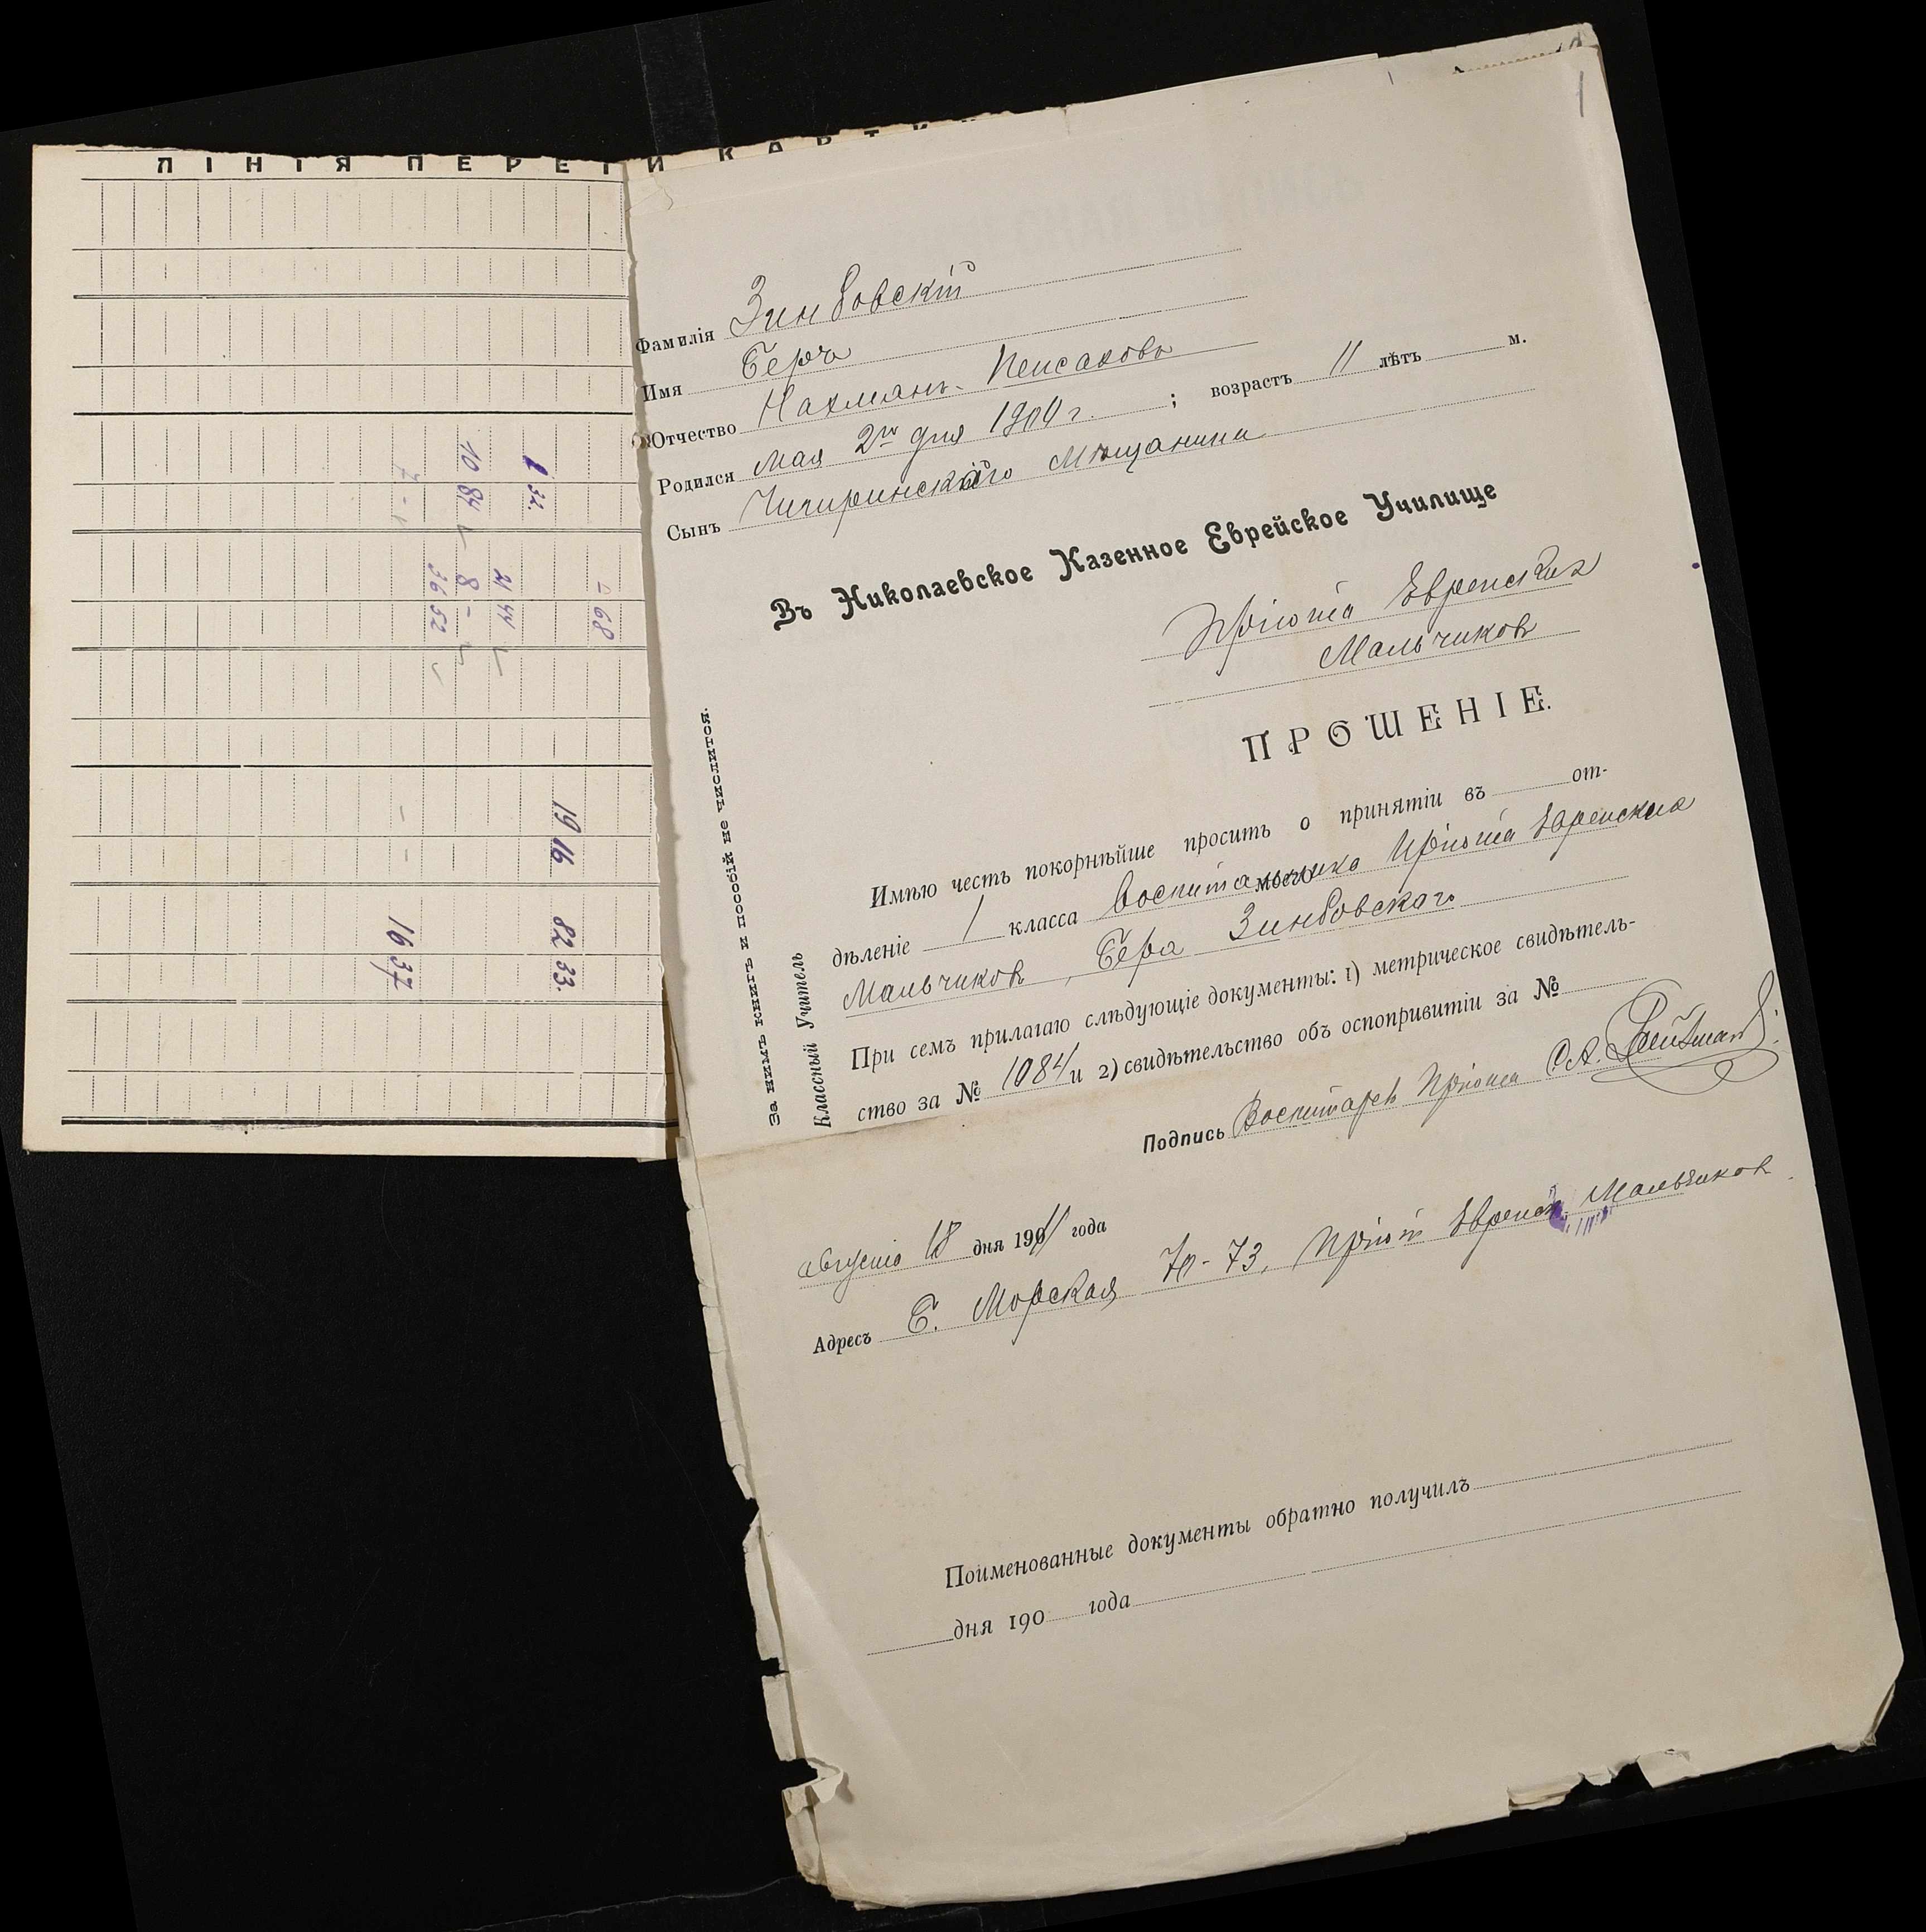 ЛІНІЯ ПЕРЕГИ
1
Фамилія Зинбовскій
Имя Беръ
Отчество Нахманъ-Пейсаховъ
Родился Мая 2го дня 1900 г. ; возрастъ 11 лѣтъ м.
Сынъ Чигиринскаго Мѣщанина
Въ Николаевское Казенное Еврейское Училище
Пріюта Еврейских
Мальчиков
ПРОШЕНІЕ.
Имѣю честь покорнѣйше просить о принятіи въ от-
дѣленіе 1 класса моего Воспитанника Пріюта Еврейских
Мальчиков, Бера Зинбовскаго
При семъ прилагаю слѣдующіе документы: 1) метрическое свидѣтель-
ство за № 1084 и 2) свидѣтельство объ оспопривитіи за №
Подпись Воспитатель Пріюта
августа 18 дня 1911 года
Адресъ Б. Морская 70-73, Пріют Еврейск. Мальчиков
Поименованные документы обратно получилъ
дня 190 года
За нимъ книгъ и пособій не числится.
Классный Учитель
1 32.
10 84
7 -
0 68
21 44
8 -
36 52
19 16
82 33.
16 37